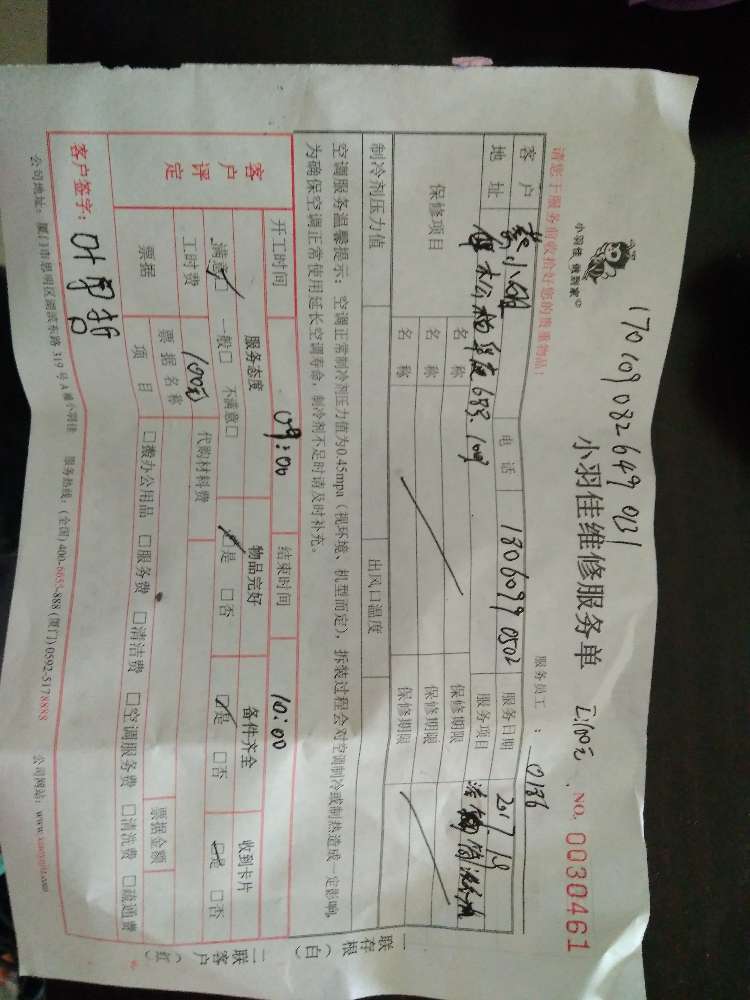 小羽佳 做到家
170109082649 0131
小羽佳维修服务单
NO. 0030461
请您于服务前收拾好您的贵重物品!
服务员工 : 0136
客户
电话 18060990502
服务日期 2017 1 9
地址
服务项目
保修项目
名称
保修期限
名称
保修期限
名称
保修期限
制冷剂压力值
出风口温度
空调服务温馨提示: 空调正常制冷剂压力值为0.45mpa (视环境、机型而定), 拆装过程会对空调制冷或制热造成一定影响,
为确保空调正常使用延长空调寿命, 制冷剂不足时请及时补充。
客户评定
开工时间 09:00
结束时间 10:00
服务态度
物品完好
备件齐全
收到卡片
满意□ 一般□ 不满意□
□是 □否
□是 □否
□是 □否
工时费 100元
代购材料费
票据
票据名称
票据金额
项目
□搬办公用品 □服务费 □清洁费 □空调服务费 □清洗费 □疏通费
客户签字:
公司地址: 厦门市思明区湖滨东路 319 号 A 座小羽佳
服务热线: (全国) 400-6653-888 (厦门) 0592-5178888
公司网站:
一联存根(白)
二联客户(红)